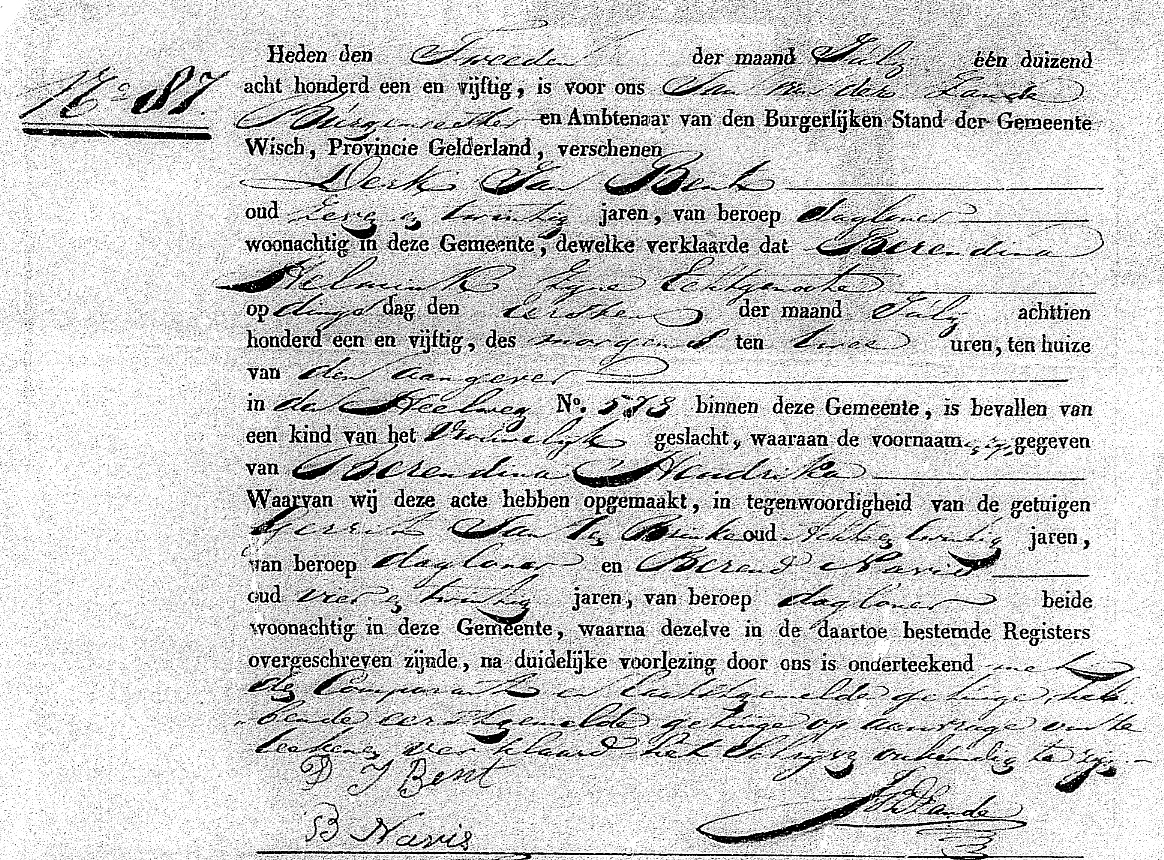 Heden den Tweeden der maand July één duizend
N.o 87. acht honderd een en vijftig, is voor ons Jan van der Zande
Burgemeester en Ambtenaar van den Burgerlijken Stand der Gemeente
Wisch, Provincie Gelderland, verschenen
Derk Jan Bent
oud Zeven en twintig jaren, van beroep dagloner
woonachtig in deze Gemeente, dewelke verklaarde dat Berendina
zyne Echtgenoote
op dings dag den Eersten der maand July achttien
honderd een en vijftig, des morgens ten twee uren, ten huize
van den aangever
in de Heelweg No. 573 binnen deze Gemeente, is bevallen van
een kind van het Vrouwelyk geslacht, waaraan de voornaamen zyn gegeven
van Berendina Hendrika
Waarvan wij deze acte hebben opgemaakt, in tegenwoordigheid van de getuigen
Gerrit Jan te Brinke oud Acht en twintig jaren,
van beroep dagloner en Berend Navis
oud vier en twintig jaren, van beroep dagloner beide
woonachtig in deze Gemeente, waarna dezelve in de daartoe bestemde Registers
overgeschreven zijnde, na duidelijke voorlezing door ons is onderteekend met
den Comparant en laatstgemelde getuige, heb-
bende eerstgemelde getuige op aanvrage om te
teekenen verklaard het Schryven onkundig te zyn.
D J Bent
JVD Zande
B Navis